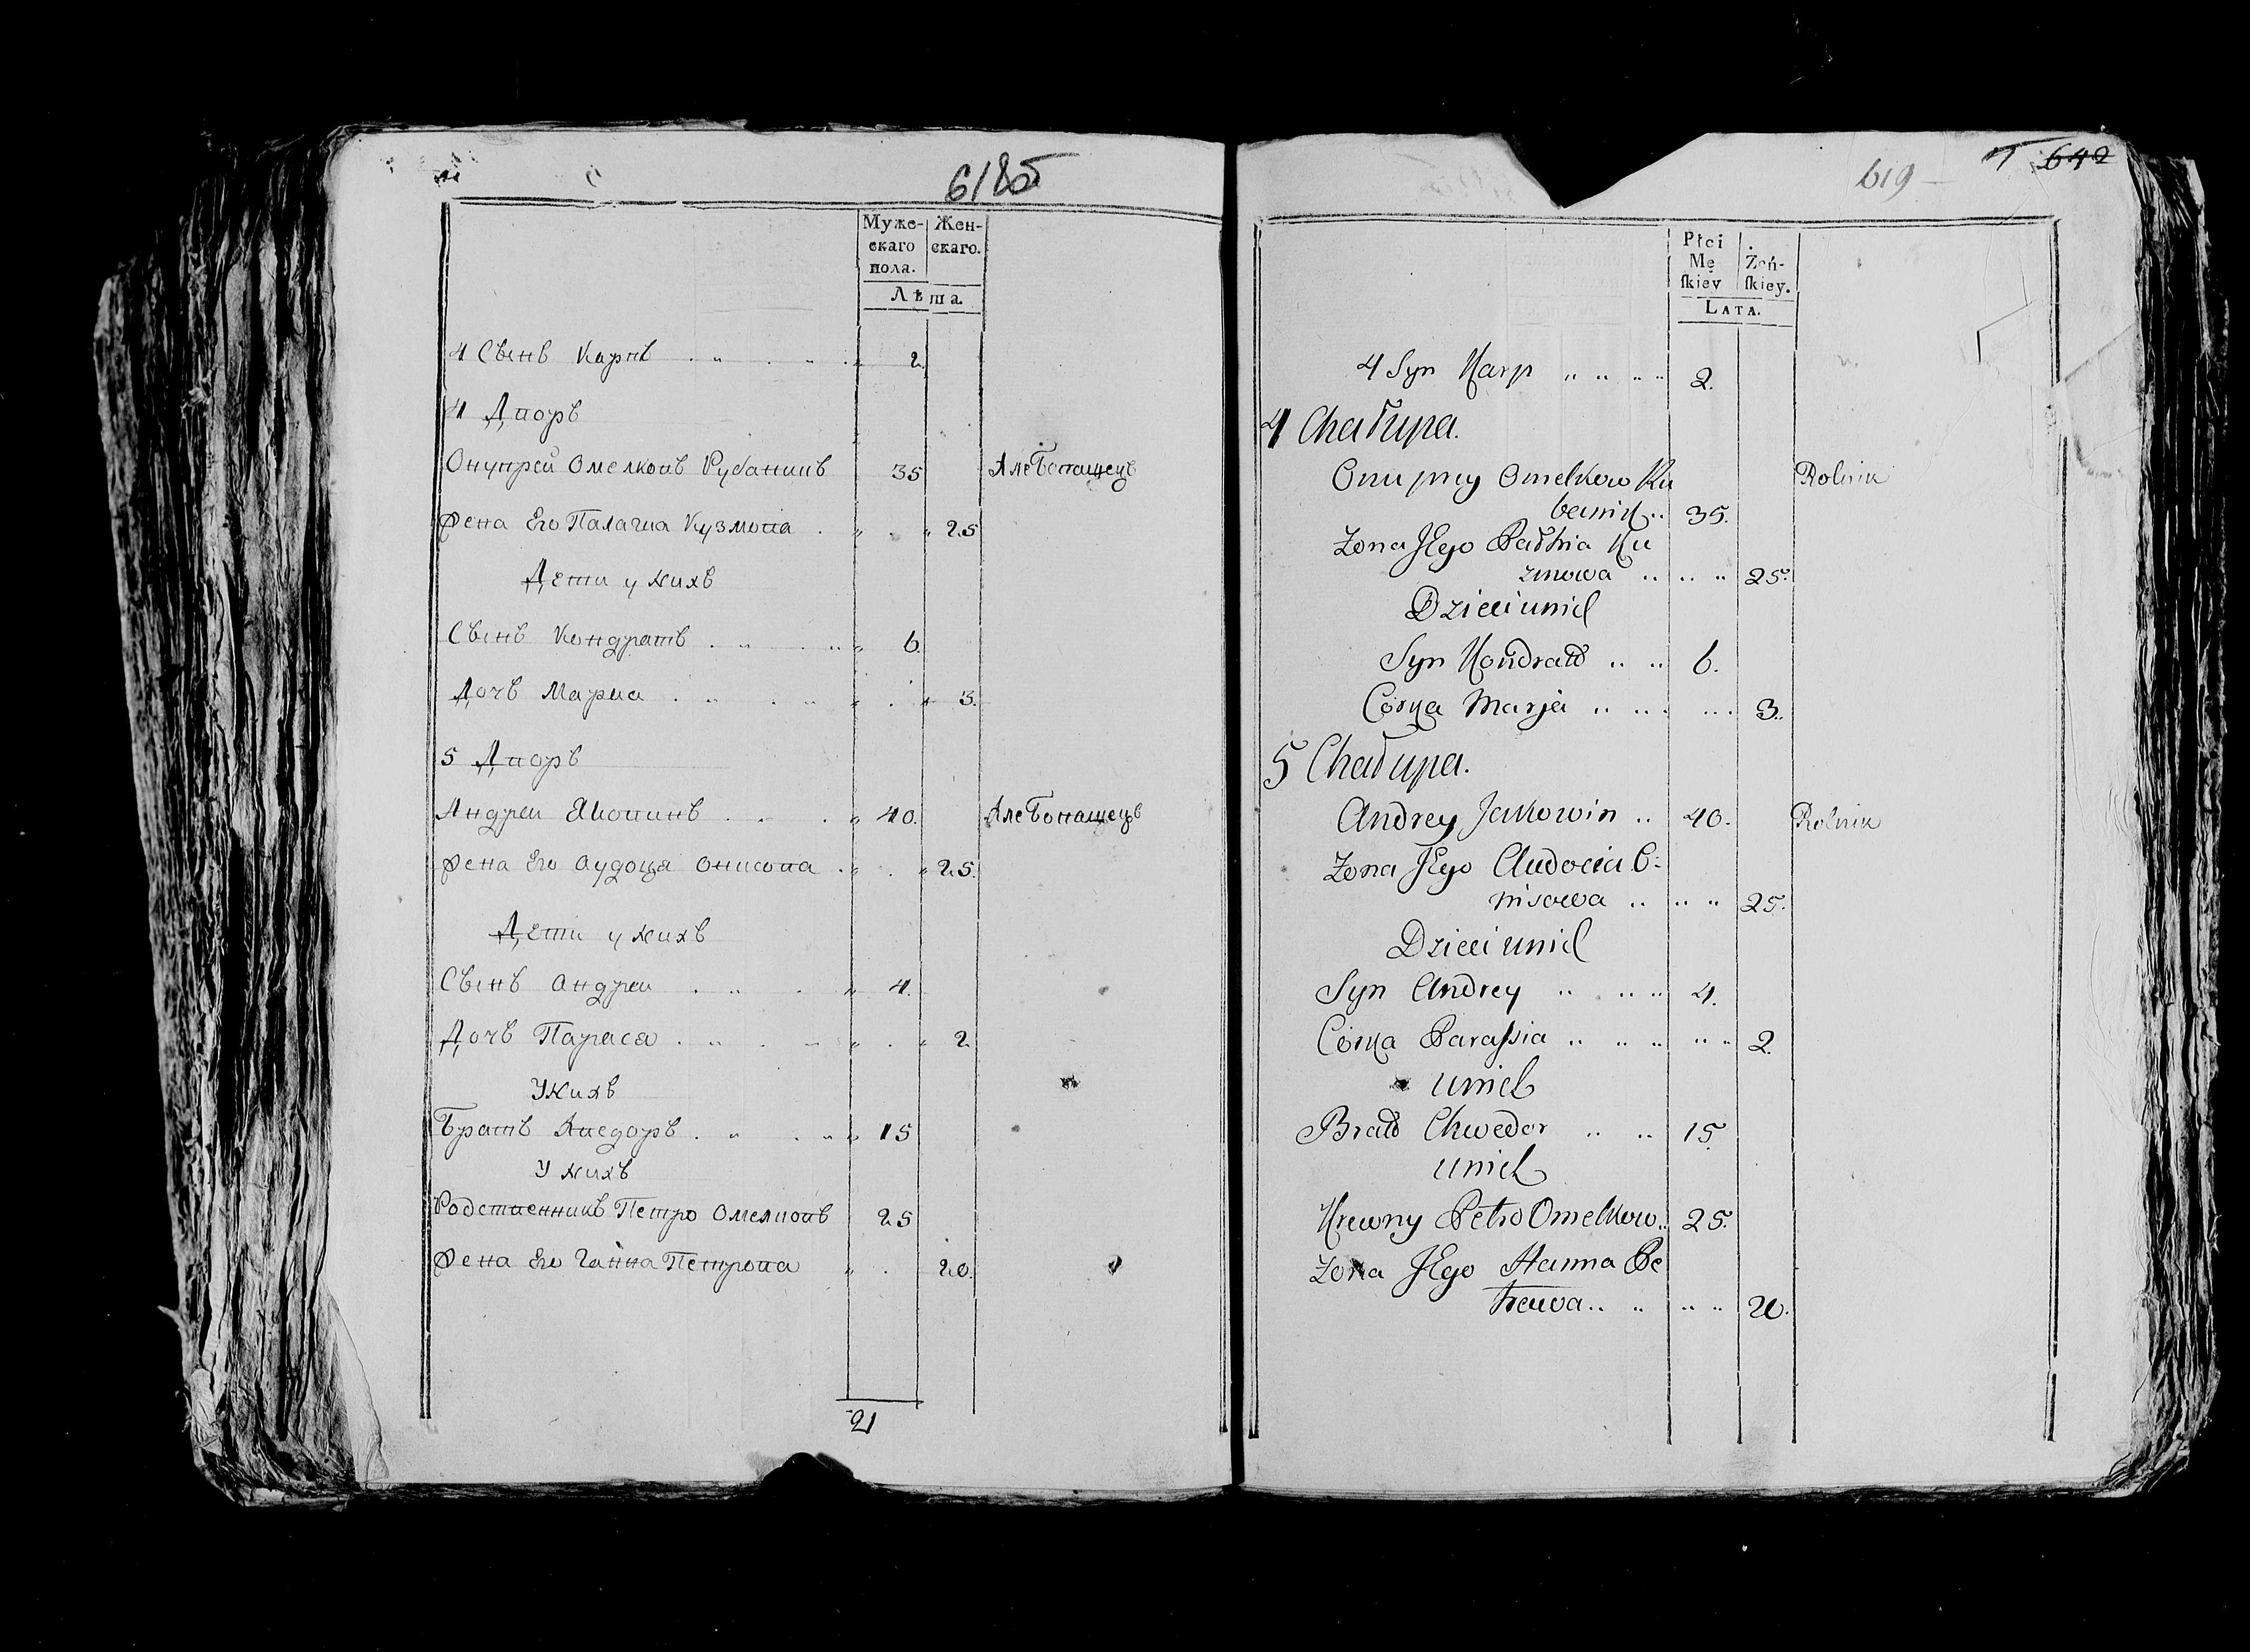 618об
Муже-
скаго
пола.
Жен-
скаго.
Лѣта.
4 Сынъ Карпъ 2.
4 Дворъ
Онупрей Омелковъ Рубаникъ 35 Хлебопашецъ
Жена Его Палагиа Кузмова 25
Дети у нихъ
Сынъ Кондратъ 6.
Дочь Мариа 3.
5 Дворъ
Андреи Яковинъ 40. Хлебопашецъ
Жена Его Аудоця Онисова 25.
Дети у нихъ
Сынъ Андреи 4.
Дочь Параса 2
У нихъ
Братъ Хведоръ 15
У нихъ
Родственникъ Петро Омелковъ 25
Жена Его Ганна Петрова 20.
21
619 642
Płci
Mę
ſkiey
Żeń-
ſkiey.
LATA.
4 Syn Karp 2.
4 Chałupa.
Onuprey Omelkow Ru Rolnik
banik 35.
Zona Jego Pałhia Ku
zmowa 25.
Dzieci unich
Syn Kondrat 6.
Córka Marja 3.
5 Chałupa.
Andrey Jakowin 40. Rolnik
Zona Jego Audocia O-
nisowa 25.
Dzieci unich
Syn Andrey 4.
Córka Paraſsia 2.
unich
Brat Chwedor 15
unich
Krewny Petro Omelkow 25.
Zona Jego Hanna Pe
trowa 20.